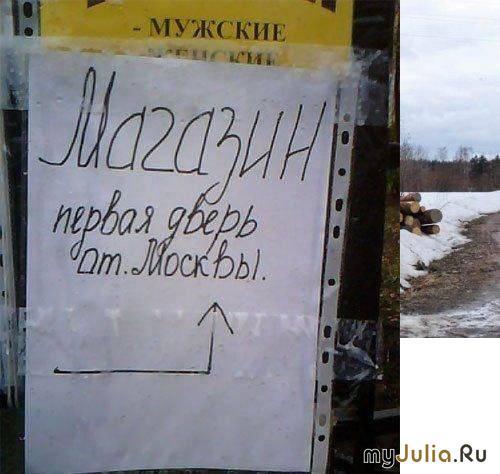 - МУЖСКИЕ
- ЖЕНСКИЕ
Магазин
первая дверь
от. Москвы.
myJulia.Ru